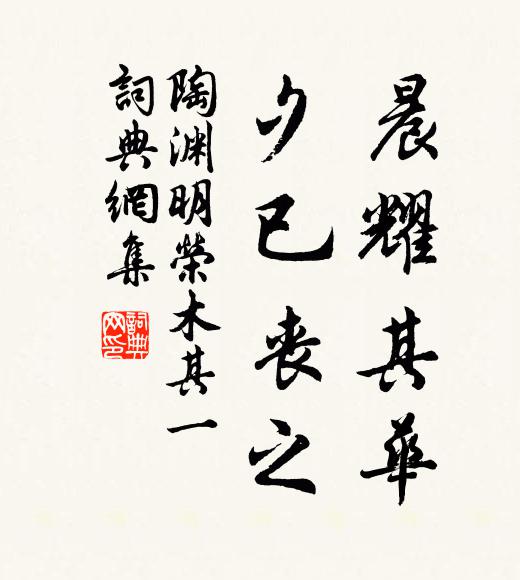 晨耀其華
夕已丧之
陶渊明榮木其一
詞典網集
詞典网印